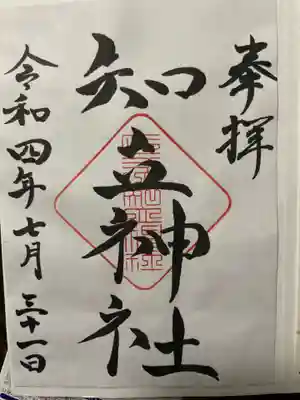 奉拝
知立神社
令和四年七月三十一日